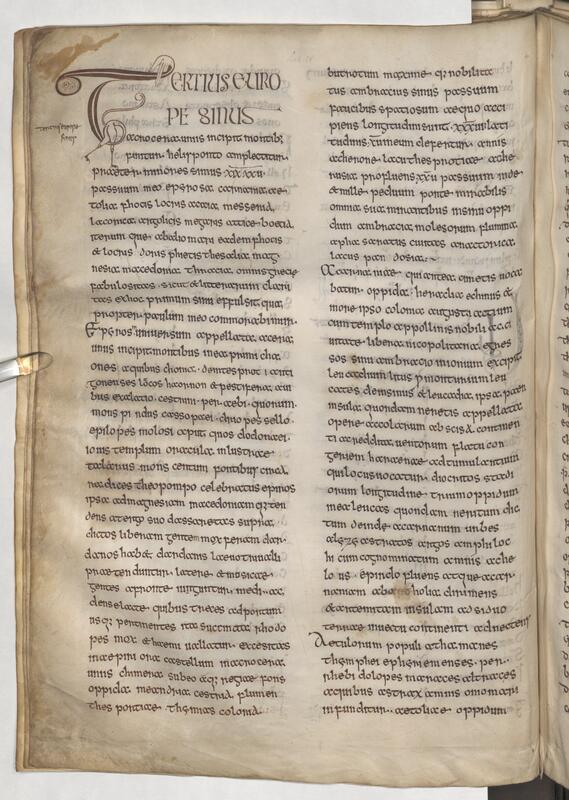 TERTIUS EURO
PE SINUS
acrocerauniis incipit montib;
finitur helisponto amplectitur
praeter minores sinus XIX XXV
passuum in eo epiros acarnania ae
tolia phocis locris achaia messenia
laconica argolicis megaris attice boetia
iterum que ab alio mari eadem phocis
et locris doris phetis thesalia mag
nesia macedonia thracia omnis grecie
fabulositas sicut et litterarum clari
tas ex hoc primum sinu effulsit qua
propter paulum in eo commorabimur.
Epiros in universum appellata a cerau
niis incipit montibus in ea primi cha
ones a quibus chonia deintes prot i anti
gonenses locos haornon et pestifera aui
bus exalatio cestrini perrebi quorum
mons pindus cassopaei driopes sello
epilopes molosi aput quos dodonaei
iouis templum oraculo inlustrae
talarus mons centum fontibus circa
radices theopompo celebratus epiros
ipsa ad magnesiam macedoniam q; ten
dens a tergo suo dassaretas supra
dictos liberam gentem mox feram dar
danos habet dardanis laeuo triualli
praetenduntur latere et musicae
gentes a fronte iunguntur medi ac
denselatae quibus traces ad pontum
usq; pertinentes ita succincta rhodo
pes mox et haemi uallatur excelsitas
in aepiri ora castellum in acrocerau
niis chimera sub eo aq; regiae fons
oppida meandria cestria flumen
thesprotiae thymias colonia
buthrotum maxime q; nobilita
tus ambracius sinus passuum
faucibus spatiosum aequo acci
piens longitudinis XXXVII lati
tudinis XV in eum defertur amnis
acheron e lacu thesprotiae ache
rusia profluens XXXVI passuum inde
et mille pedum ponte mirabilis
omnia sua mirantibus in sinu oppi
dum ambracia molosorum flumina
aphas aractus ciuitas anactorica
lacus pandosia
Acarnaniae quia antea curetis uoca
batur oppida heraclia echinus et
in ore ipso colonia augusti actium
cum templo appollinis nobili ac ci
uitate libera nicopolitana egres
sos sinu ambracio in ionium excipit
leucadium litus promonturium leu
cates dein sinus et leucadia ipsa paen
insula quondam neritis appellata
opere accolarum abscisa continen
ti ac reddita uentorum flatu con
geriem harenae adtumulantium
qui locus uocatur diorictos stadi
orum longitudine trium oppidum
in ea leucas quondam neritum dic
tum deinde acarnanum urbes
alyzea stratos argos amphiloc
hicum cognominatum amnis ache
lous e pindo fluens atque acar
naniam ab aetholia dirimens
et artemitam insulam adsiduo
terrae inuectu continenti adnectens
Aetulorum populi athamanes
thymphei ephirenses per
rhebi dolopes maraces atraces
a quibus astrax amnis in omari
infunditur aetoliae oppidum